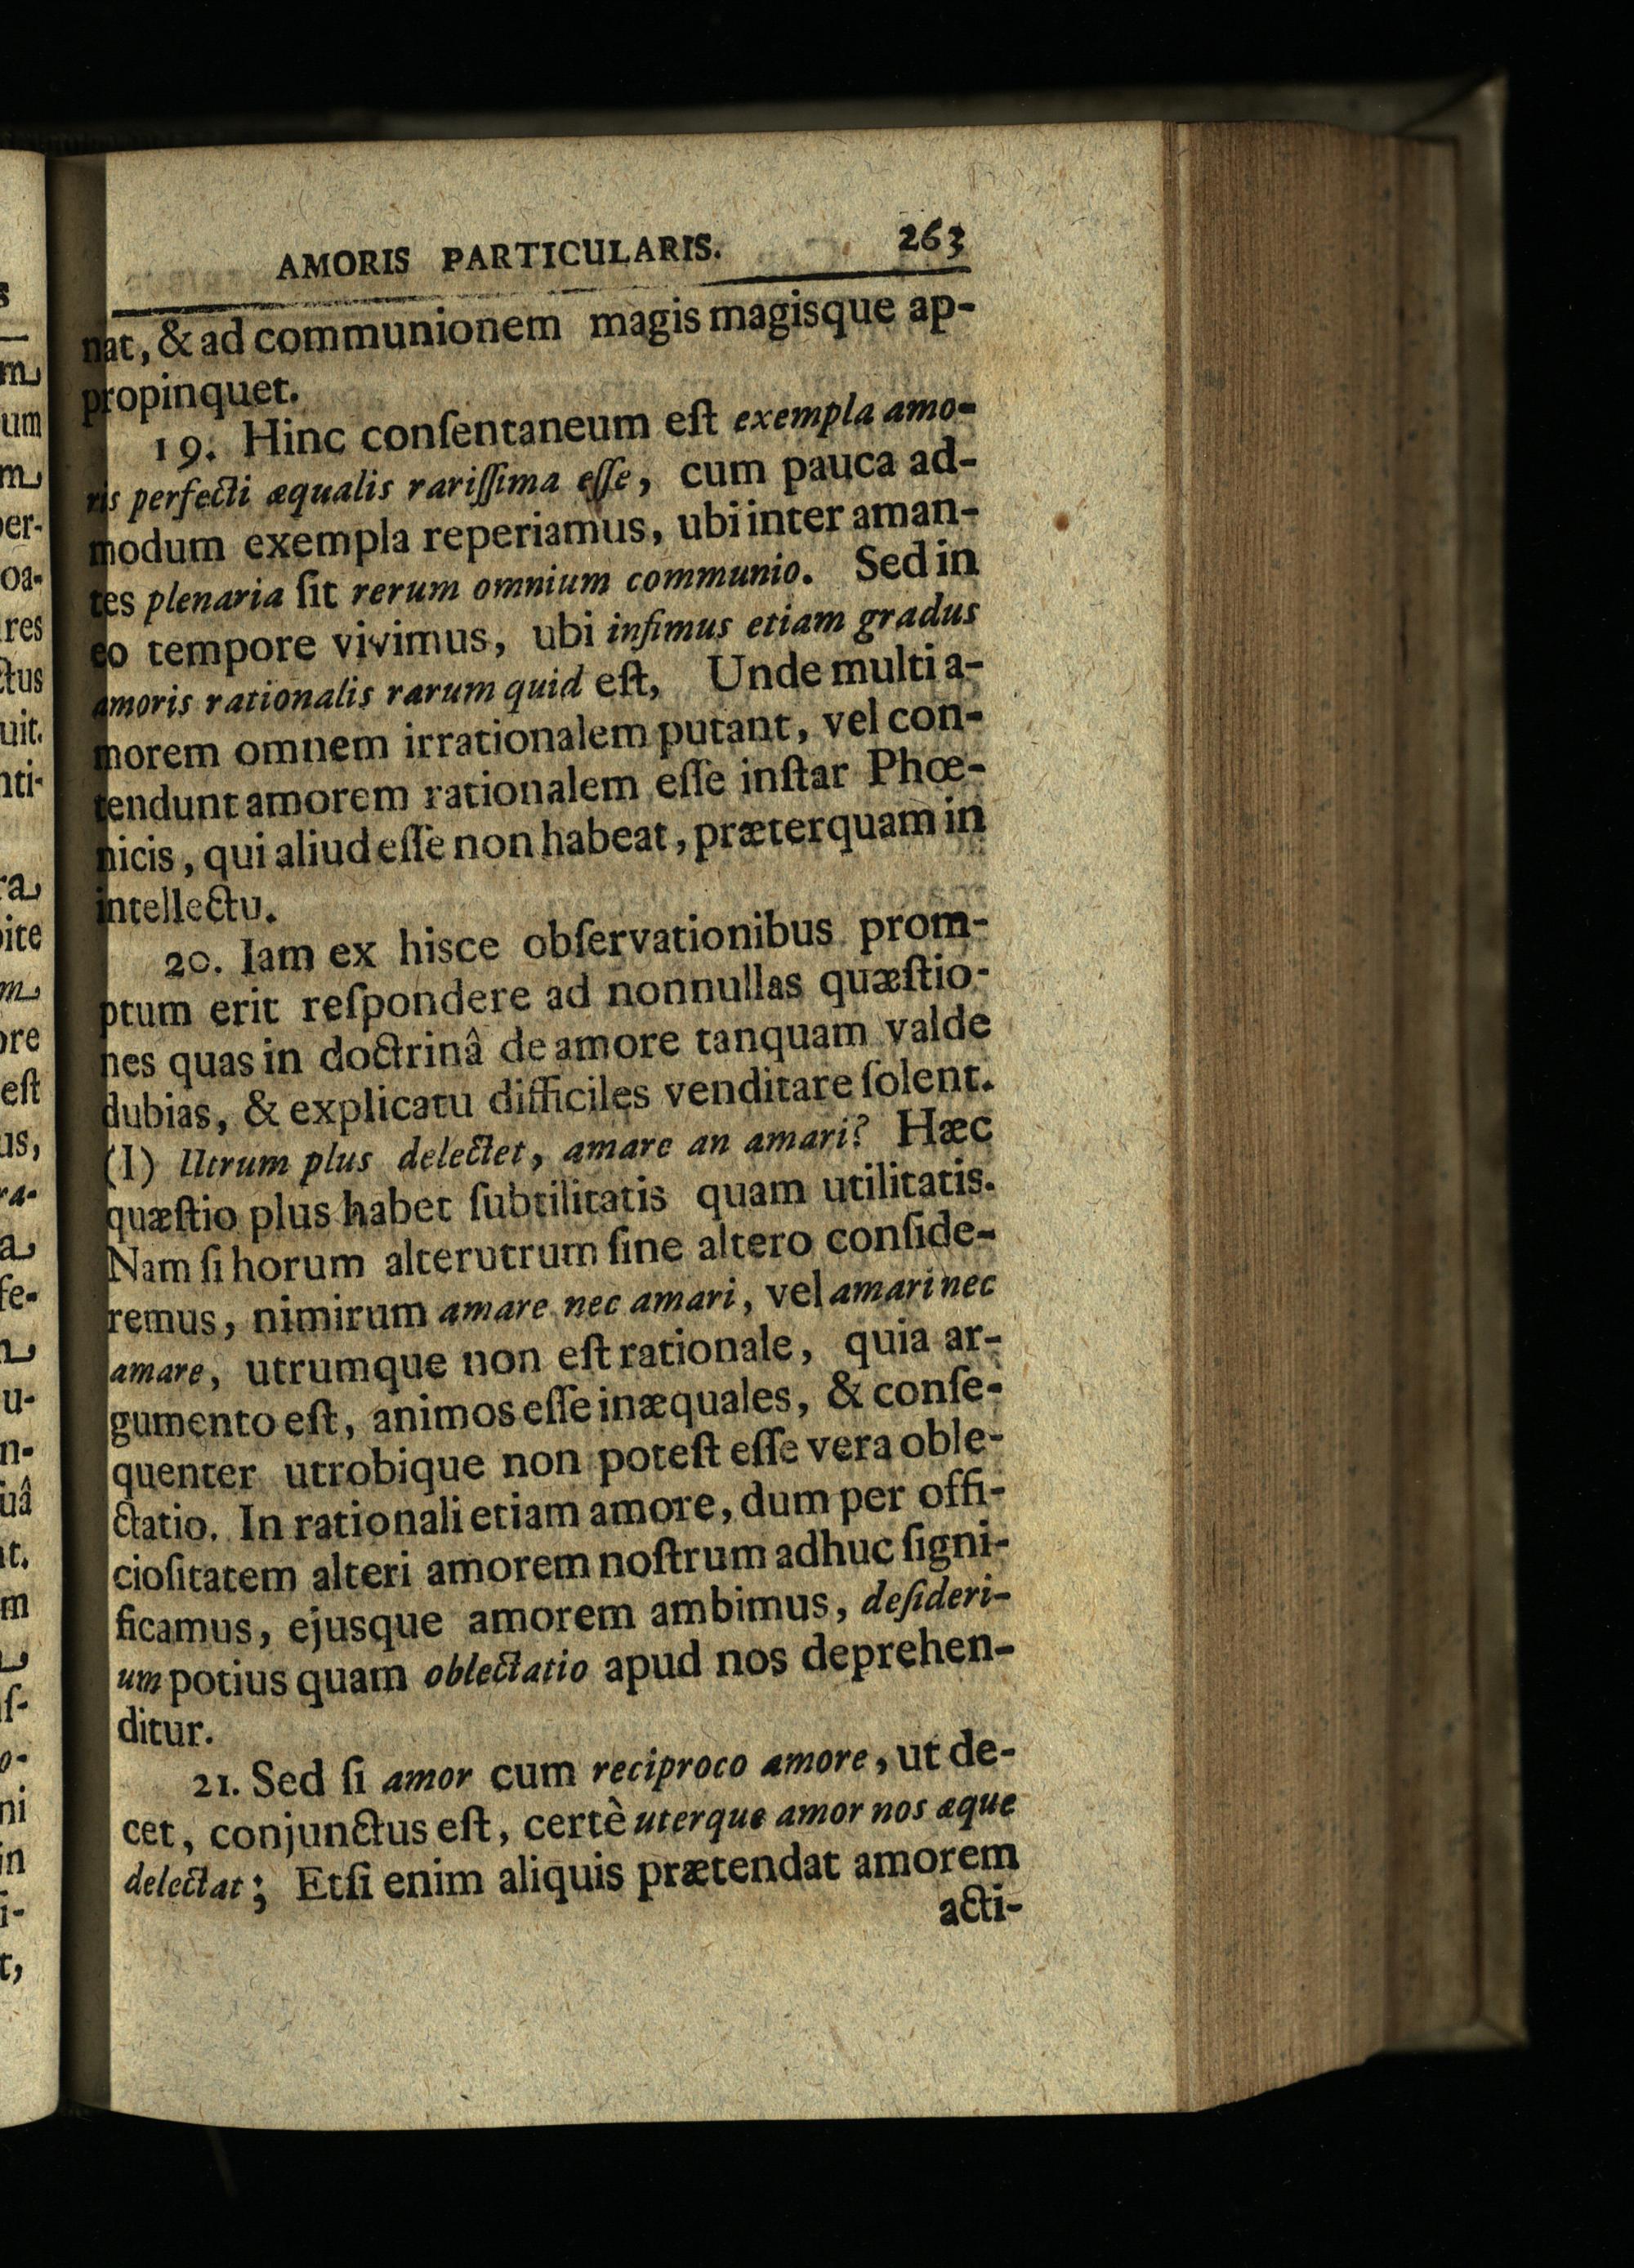 AMORIS PARTICULARIS. 263
nat, & ad communionem magis magisque ap-
propinquet.
19. Hinc conſentaneum eſt exempla amo-
ris perfecti æqualis rariſſima eſſe, cum pauca ad-
modum exempla reperiamus, ubi inter aman-
tes plenaria ſit rerum omnium communio. Sed in
eo tempore vivimus, ubi infimus etiam gradus
amoris rationalis rarum quid eſt, Unde multi a-
morem omnem irrationalem putant, vel con-
tendunt amorem rationalem eſſe inſtar Phœ-
nicis, qui aliud eſſe non habeat, præterquam in
intellectu.
20. Iam ex hisce obſervationibus prom-
ptum erit reſpondere ad nonnullas quæſtio-
nes quas in doctrinâ de amore tanquam valde
dubias, & explicatu difficiles venditare ſolent.
(I) Utrum plus delectet, amare an amari? Hæc
quæſtio plus habet ſubtilitatis quam utilitatis.
Nam ſi horum alterutrum ſine altero conſide-
remus, nimirum amare nec amari, vel amari nec
amare, utrumque non eſt rationale, quia ar-
gumento eſt, animos eſſe inæquales, & conſe-
quenter utrobique non poteſt eſſe vera oble-
ctatio. In rationali etiam amore, dum per offi-
cioſitatem alteri amorem noſtrum adhuc ſigni-
ficamus, ejusque amorem ambimus, deſideri-
um potius quam oblectatio apud nos deprehen-
ditur.
21. Sed ſi amor cum reciproco amore, ut de-
cet, conjunctus eſt, certè uterque amor nos æque
delectat; Etſi enim aliquis prætendat amorem
acti-